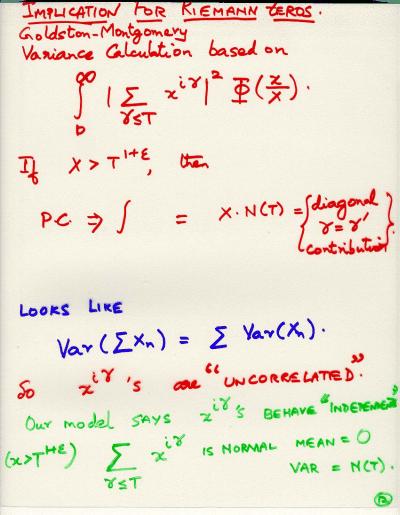 IMPLICATION FOR RIEMANN ZEROS.
Goldston-Montgomery
Variance Calculation based on
∫_0^∞ |∑_{γ≤T} x^{iγ}|² Φ(x/X).
If X > T^{1+ε}, then
P.C. ⇒ ∫ = X·N(T) = {diagonal γ=γ' contribution}.
LOOKS LIKE
Var(∑X_n) = ∑ Var(X_n).
So x^{iγ}'s are "UNCORRELATED."
Our model SAYS x^{iγ}'s BEHAVE "INDEPENDENT"
(x>T^{1+ε}) ∑_{γ≤T} x^{iγ} IS NORMAL MEAN = 0
VAR = N(T).